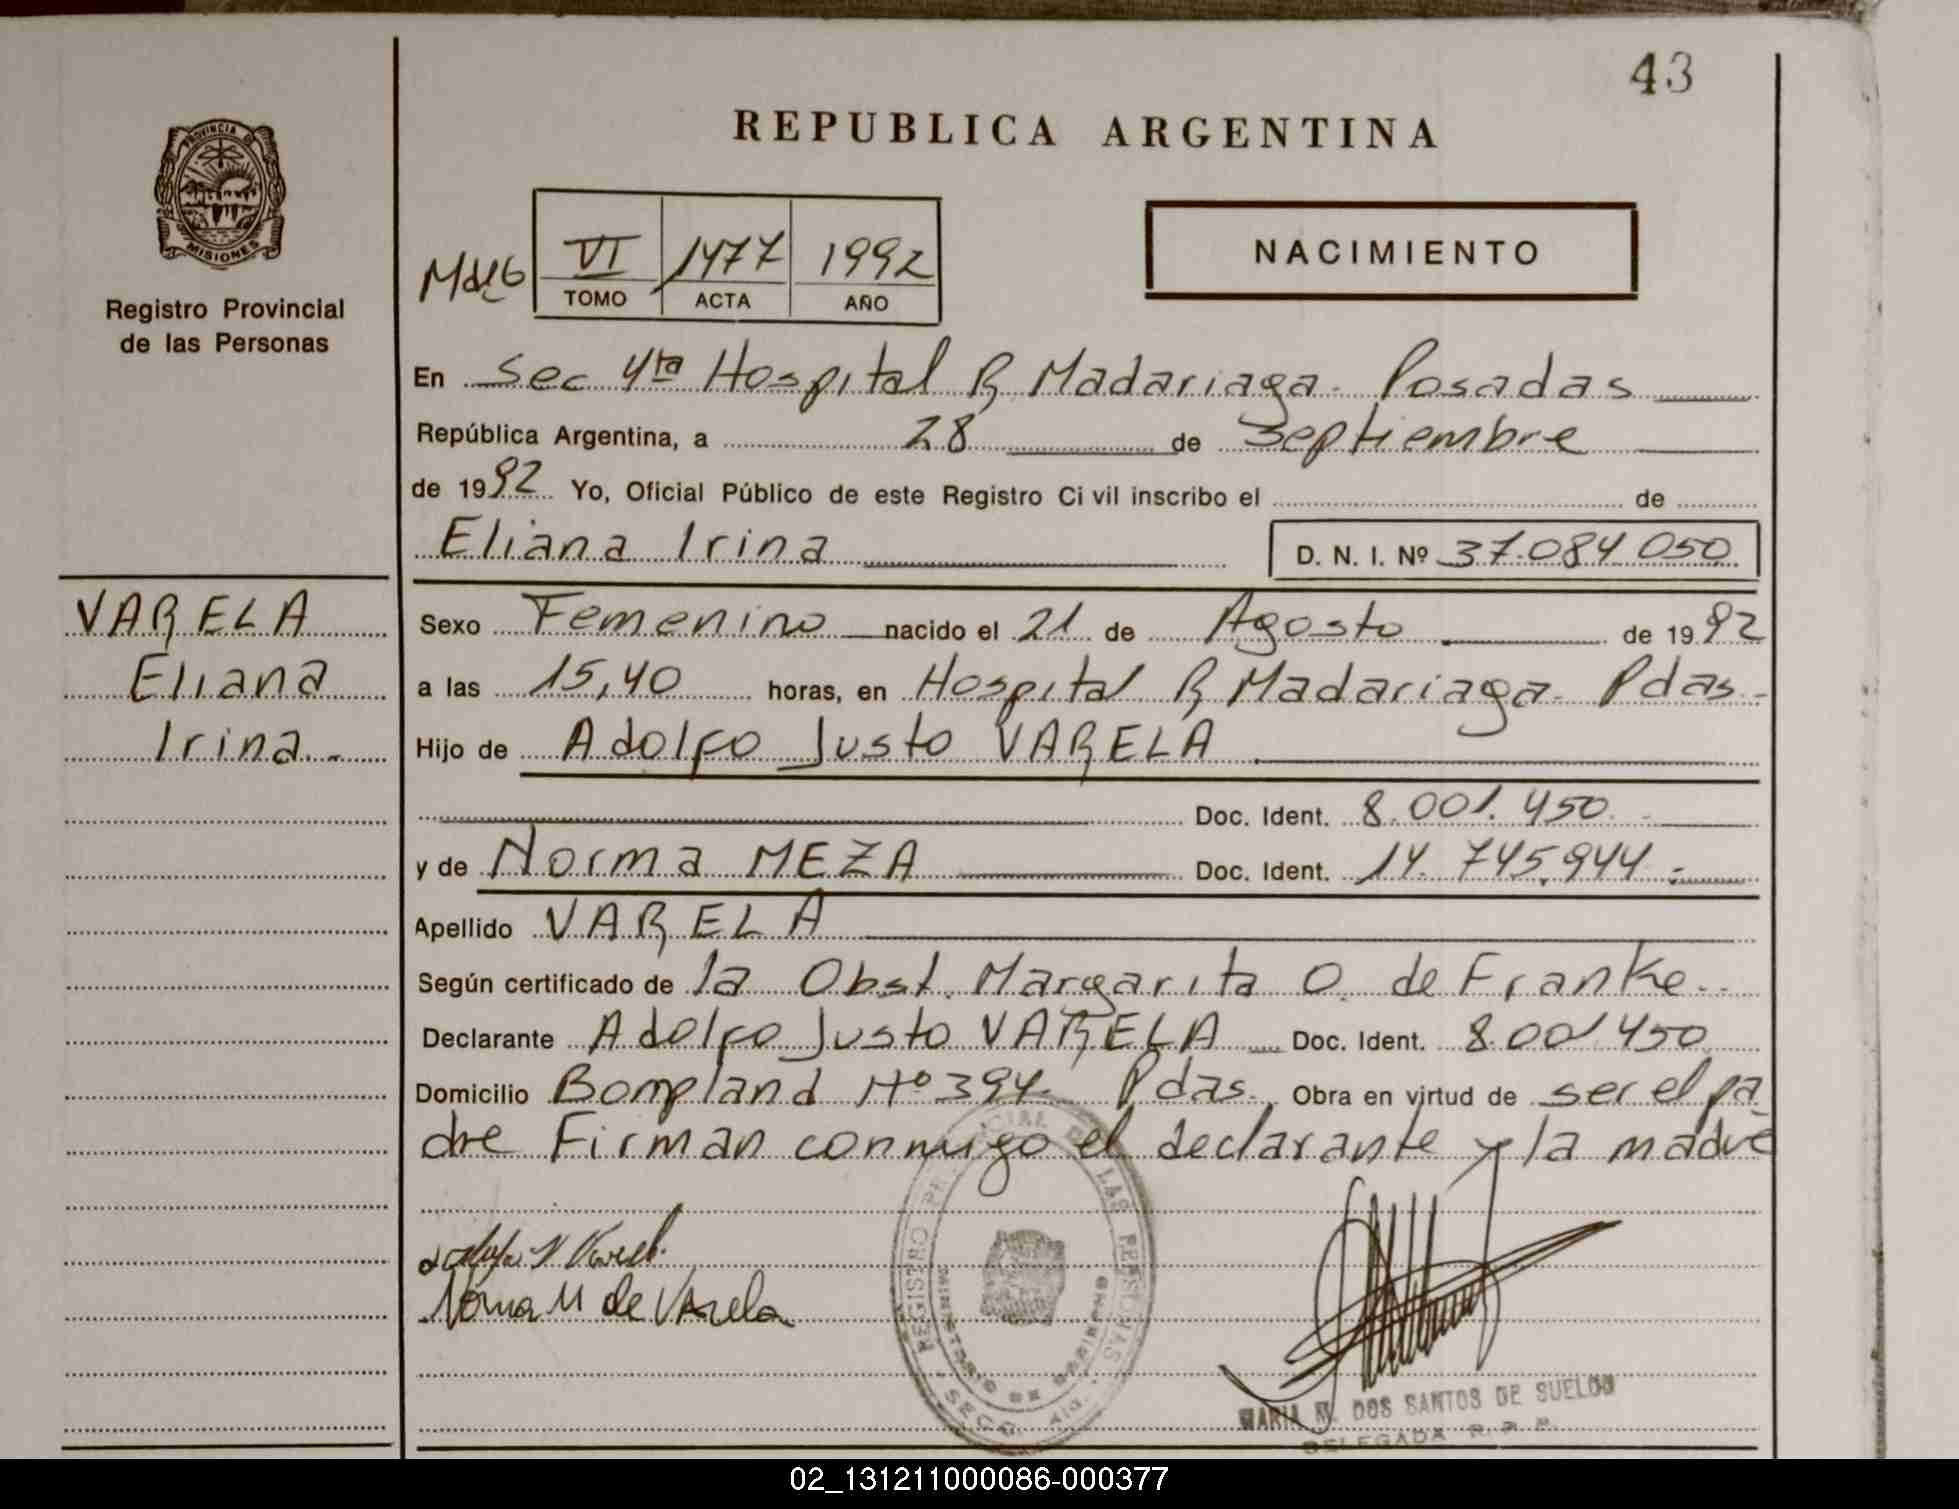 43
PROVINCIA DE
MISIONES
Registro Provincial
de las Personas
REPUBLICA ARGENTINA
VI 1477 1992
TOMO ACTA AÑO
NACIMIENTO
En Sec 4ta Hospital R Madariaga. Posadas
República Argentina, a 28 de Septiembre
de 1992 Yo, Oficial Público de este Registro Civil inscribo el de
Eliana Irina D. N. I. Nº 37.084.050
VARELA
Eliana
Irina.-
Sexo Femenino nacido el 21 de Agosto de 1992
a las 15,40 horas, en Hospital R Madariaga. Pdas.-
Hijo de Adolfo Justo VARELA
Doc. Ident. 8.001.450
y de Norma MEZA Doc. Ident. 14.745.944.-
Apellido VARELA
Según certificado de la Obst. Margarita O. de Franke..
Declarante Adolfo Justo VARELA Doc. Ident. 8.001450
Domicilio Bompland Nº 394. Pdas. Obra en virtud de ser el pa
dre Firman conmigo el declarante y la madre
Norma M de Varela
REGISTRO PROVINCIAL DE LAS PERSONAS
MINISTERIO DE GOBIERNO
MARIA M. DOS SANTOS DE SUELDO
DELEGADA R. P. P.
02_131211000086-000377